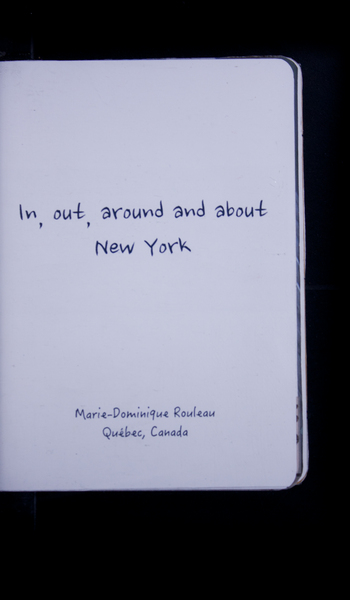 In, out, around and about
New York
Marie-Dominique Rouleau
Québec, Canada